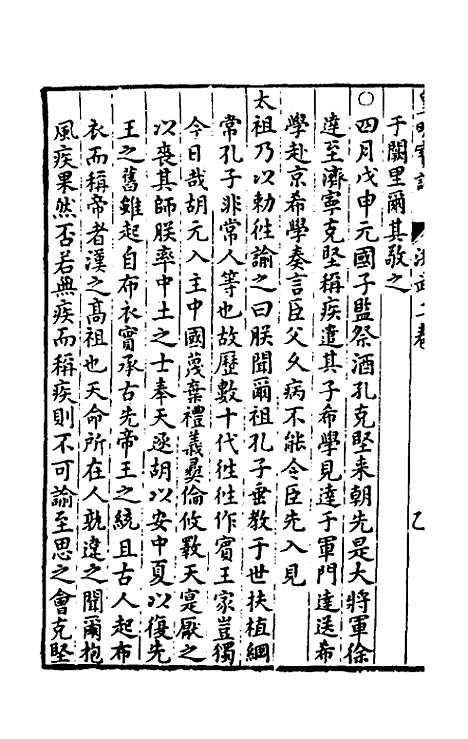 皇明寶訓 洪武二卷 乙
于闕里爾其敬之
○四月戊申元國子監祭酒孔克堅来朝先是大將軍徐
達至濟寧克堅稱疾遣其子希學見達于軍門達送希
學赴京希學奏言臣父久病不能令臣先入見
太祖乃以勅徃諭之曰朕聞爾祖孔子垂教于世扶植綱
常孔子非常人等也故歷數十代徃徃作賓王家豈獨
今日哉胡元入主中國蔑棄禮義彞倫攸斁天寔厭之
以喪其師朕率中土之士奉天逐胡以安中夏以復先
王之舊雖起自布衣實承古先帝王之統且古人起布
衣而稱帝者漢之高祖也天命所在人孰違之聞爾抱
風疾果然否若無疾而稱疾則不可諭至思之會克堅